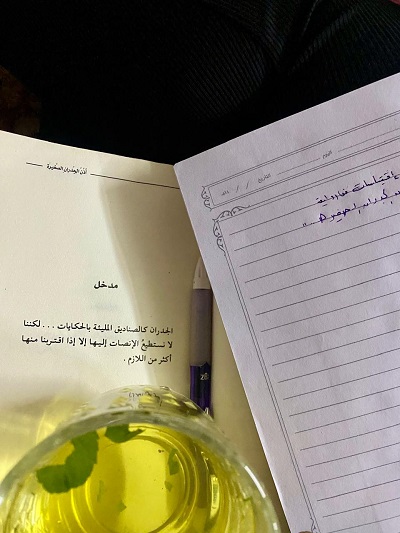 أذن الجدران الصغيرة
مدخل
الجدران كالصناديق المليئة بالحكايات ... لكننا
لا نستطيع الإنصات إليها إلا إذا اقتربنا منها
أكثر من اللازم .
اليوم
التاريخ / /
اقتباسات